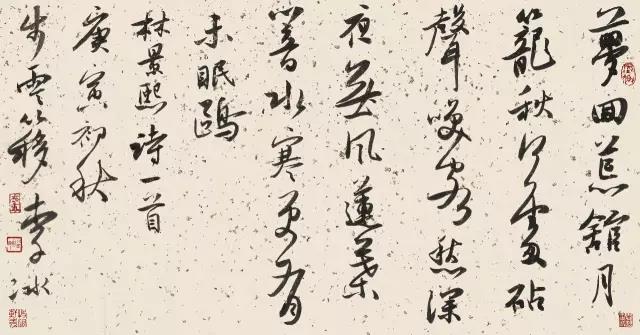 夢回荒舘月
籠秋何處砧
聲喚客愁深
夜無風蓮葉
響水寒更有
未眠鷗
林景熙詩一首
庚寅初秋
步雲簃李冰